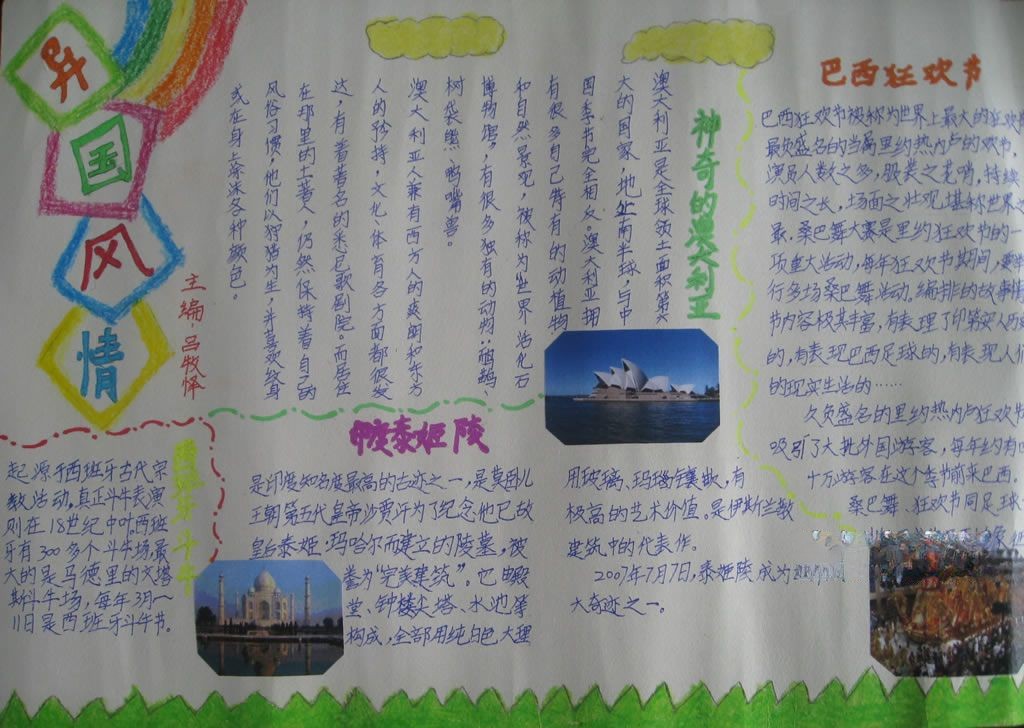 异
国
风
情
主编:吕牧怿
神奇的澳大利亚
澳大利亚是全球领土面积第六
大的国家,地处南半球,与中
国季节完全相反。澳大利亚拥
有很多自己特有的动植物
和自然景观,被称为世界活化石
博物馆,有很多独有的动物:鸸鹋、
树袋熊、鸭嘴兽。
澳大利亚人兼有西方人的爽朗和东方
人的矜持,文化、体育各方面都很发
达,有着著名的悉尼歌剧院。而居住
在那里的土著人,仍然保持着自己的
风俗习惯,他们以狩猎为生,并喜欢纹身
或在身上涂抹各种颜色。
巴西狂欢节
巴西狂欢节被称为世界上最大的狂欢
最负盛名的当属里约热内卢的欢节,
演员人数之多,服装之花哨,持续
时间之长,场面之壮观,堪称世界之
最.桑巴舞大赛是里约狂欢节的一
项重大活动,每年狂欢节期间,要举
行多场桑巴舞活动,编排的故事情
节内容极其丰富,有表理了印第安人历
的,有表现巴西足球的,有表现人们
的现实生活的……
久负盛名的里约热内卢狂欢节
吸引了大批外国游客,每年约有四
十万游客在这个季节前来巴西。
桑巴舞、狂欢节同足球
西班牙斗牛
起源于西班牙古代宗
教活动,真正斗牛表演
则在18世纪中叶。西班
牙有300多个斗牛场最
大的是马德里的文塔
斯斗牛场,每年3月—
11日是西班牙斗牛节。
印度泰姬陵
是印度知名度最高的古迹之一,是莫卧儿
王朝第五代皇帝沙贾汗为了纪念他已故
皇后泰姬·玛哈尔而建立的陵墓,被
誉为“完美建筑”。它由殿
堂、钟楼尖塔、水池等
构成,全部用纯白色大理
用玻璃、玛瑙镶嵌,有
极高的艺术价值。是伊斯兰教
建筑中的代表作。
2007年7月7日,泰姬陵成为
大奇迹之一。